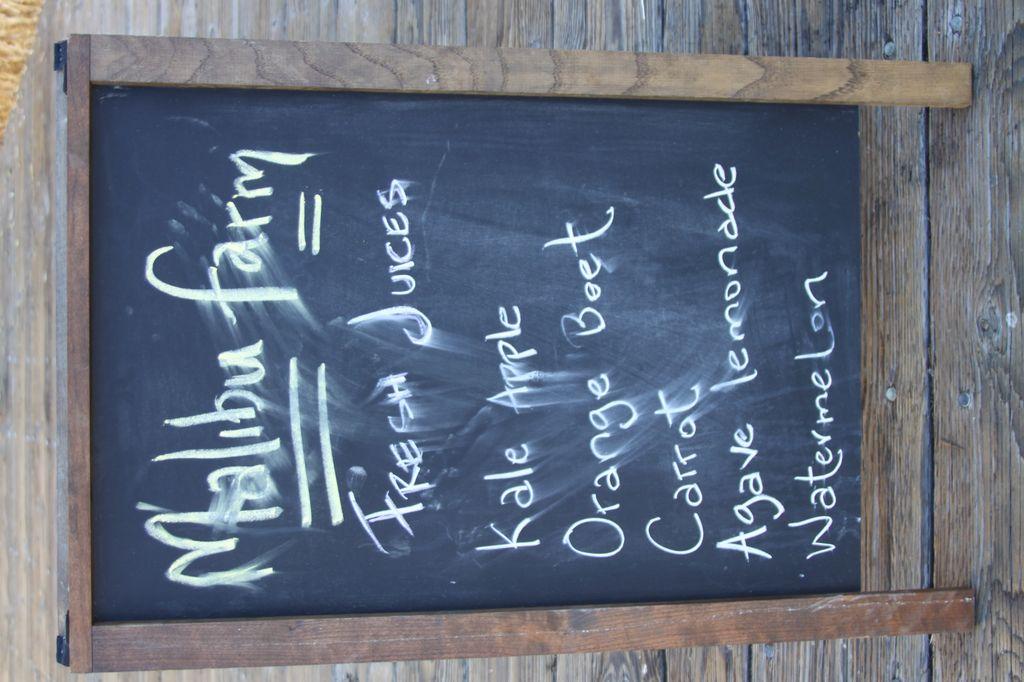 Malibu farm
FRESH JUICES
Kale Apple
Orange Beet
Carrot
Agave lemonade
Watermelon